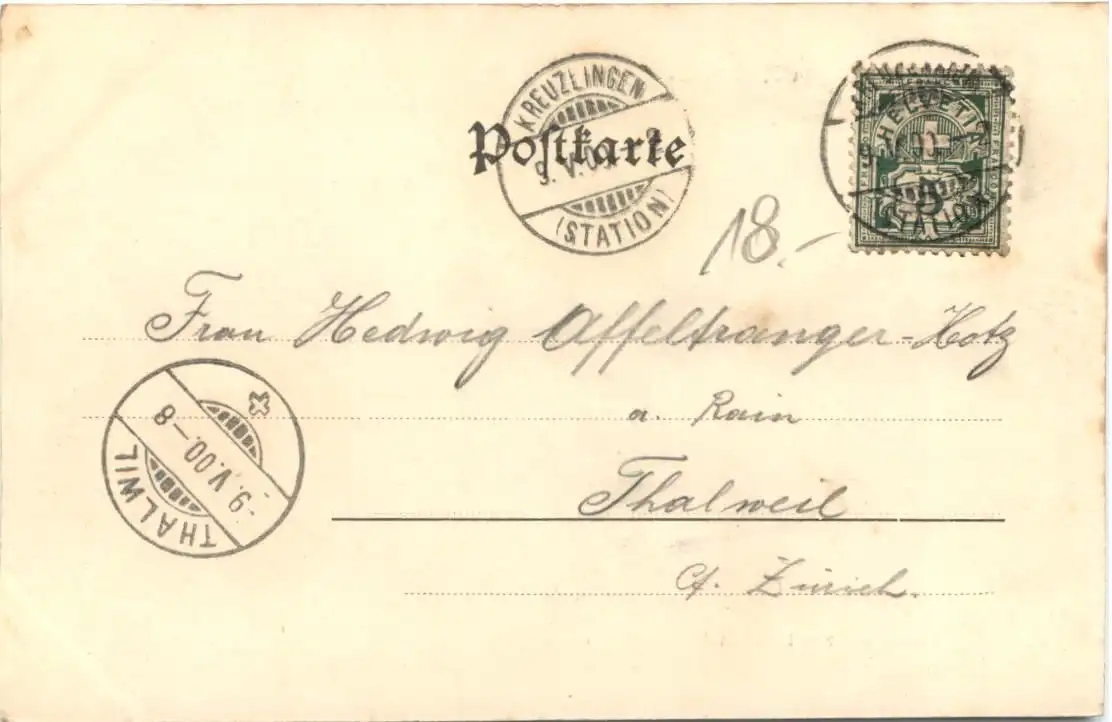 KREUZLINGEN
Postkarte
9.V.00
(STATION)
HELVETIA
5
(STATION)
18.-
Frau Hedwig Affeltranger-Hotz
a. Rain
Thalweil
Ct. Zürich.
THALWIL
-9.V.00.-8